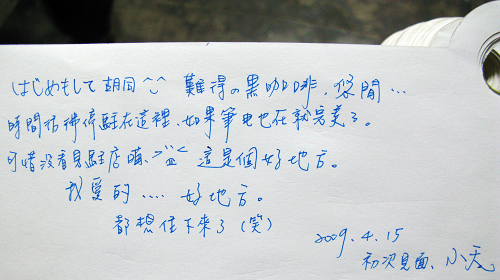 はじめもして 胡同^_^ 難得の黑咖啡,悠閒…
時間彷彿停駐在這裡,如果筆电也在就完美了。
可惜沒看見駐店喵、>"皿"< 這是個好地方。
我愛的.... 好地方。
都想住下來了(笑)
2009.4.15
初次見面、小天